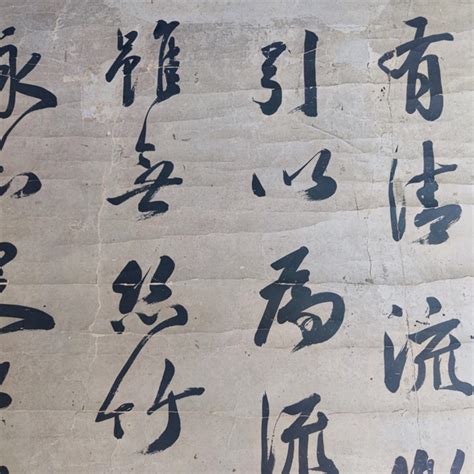 有清流
引以為流
雖無絲竹